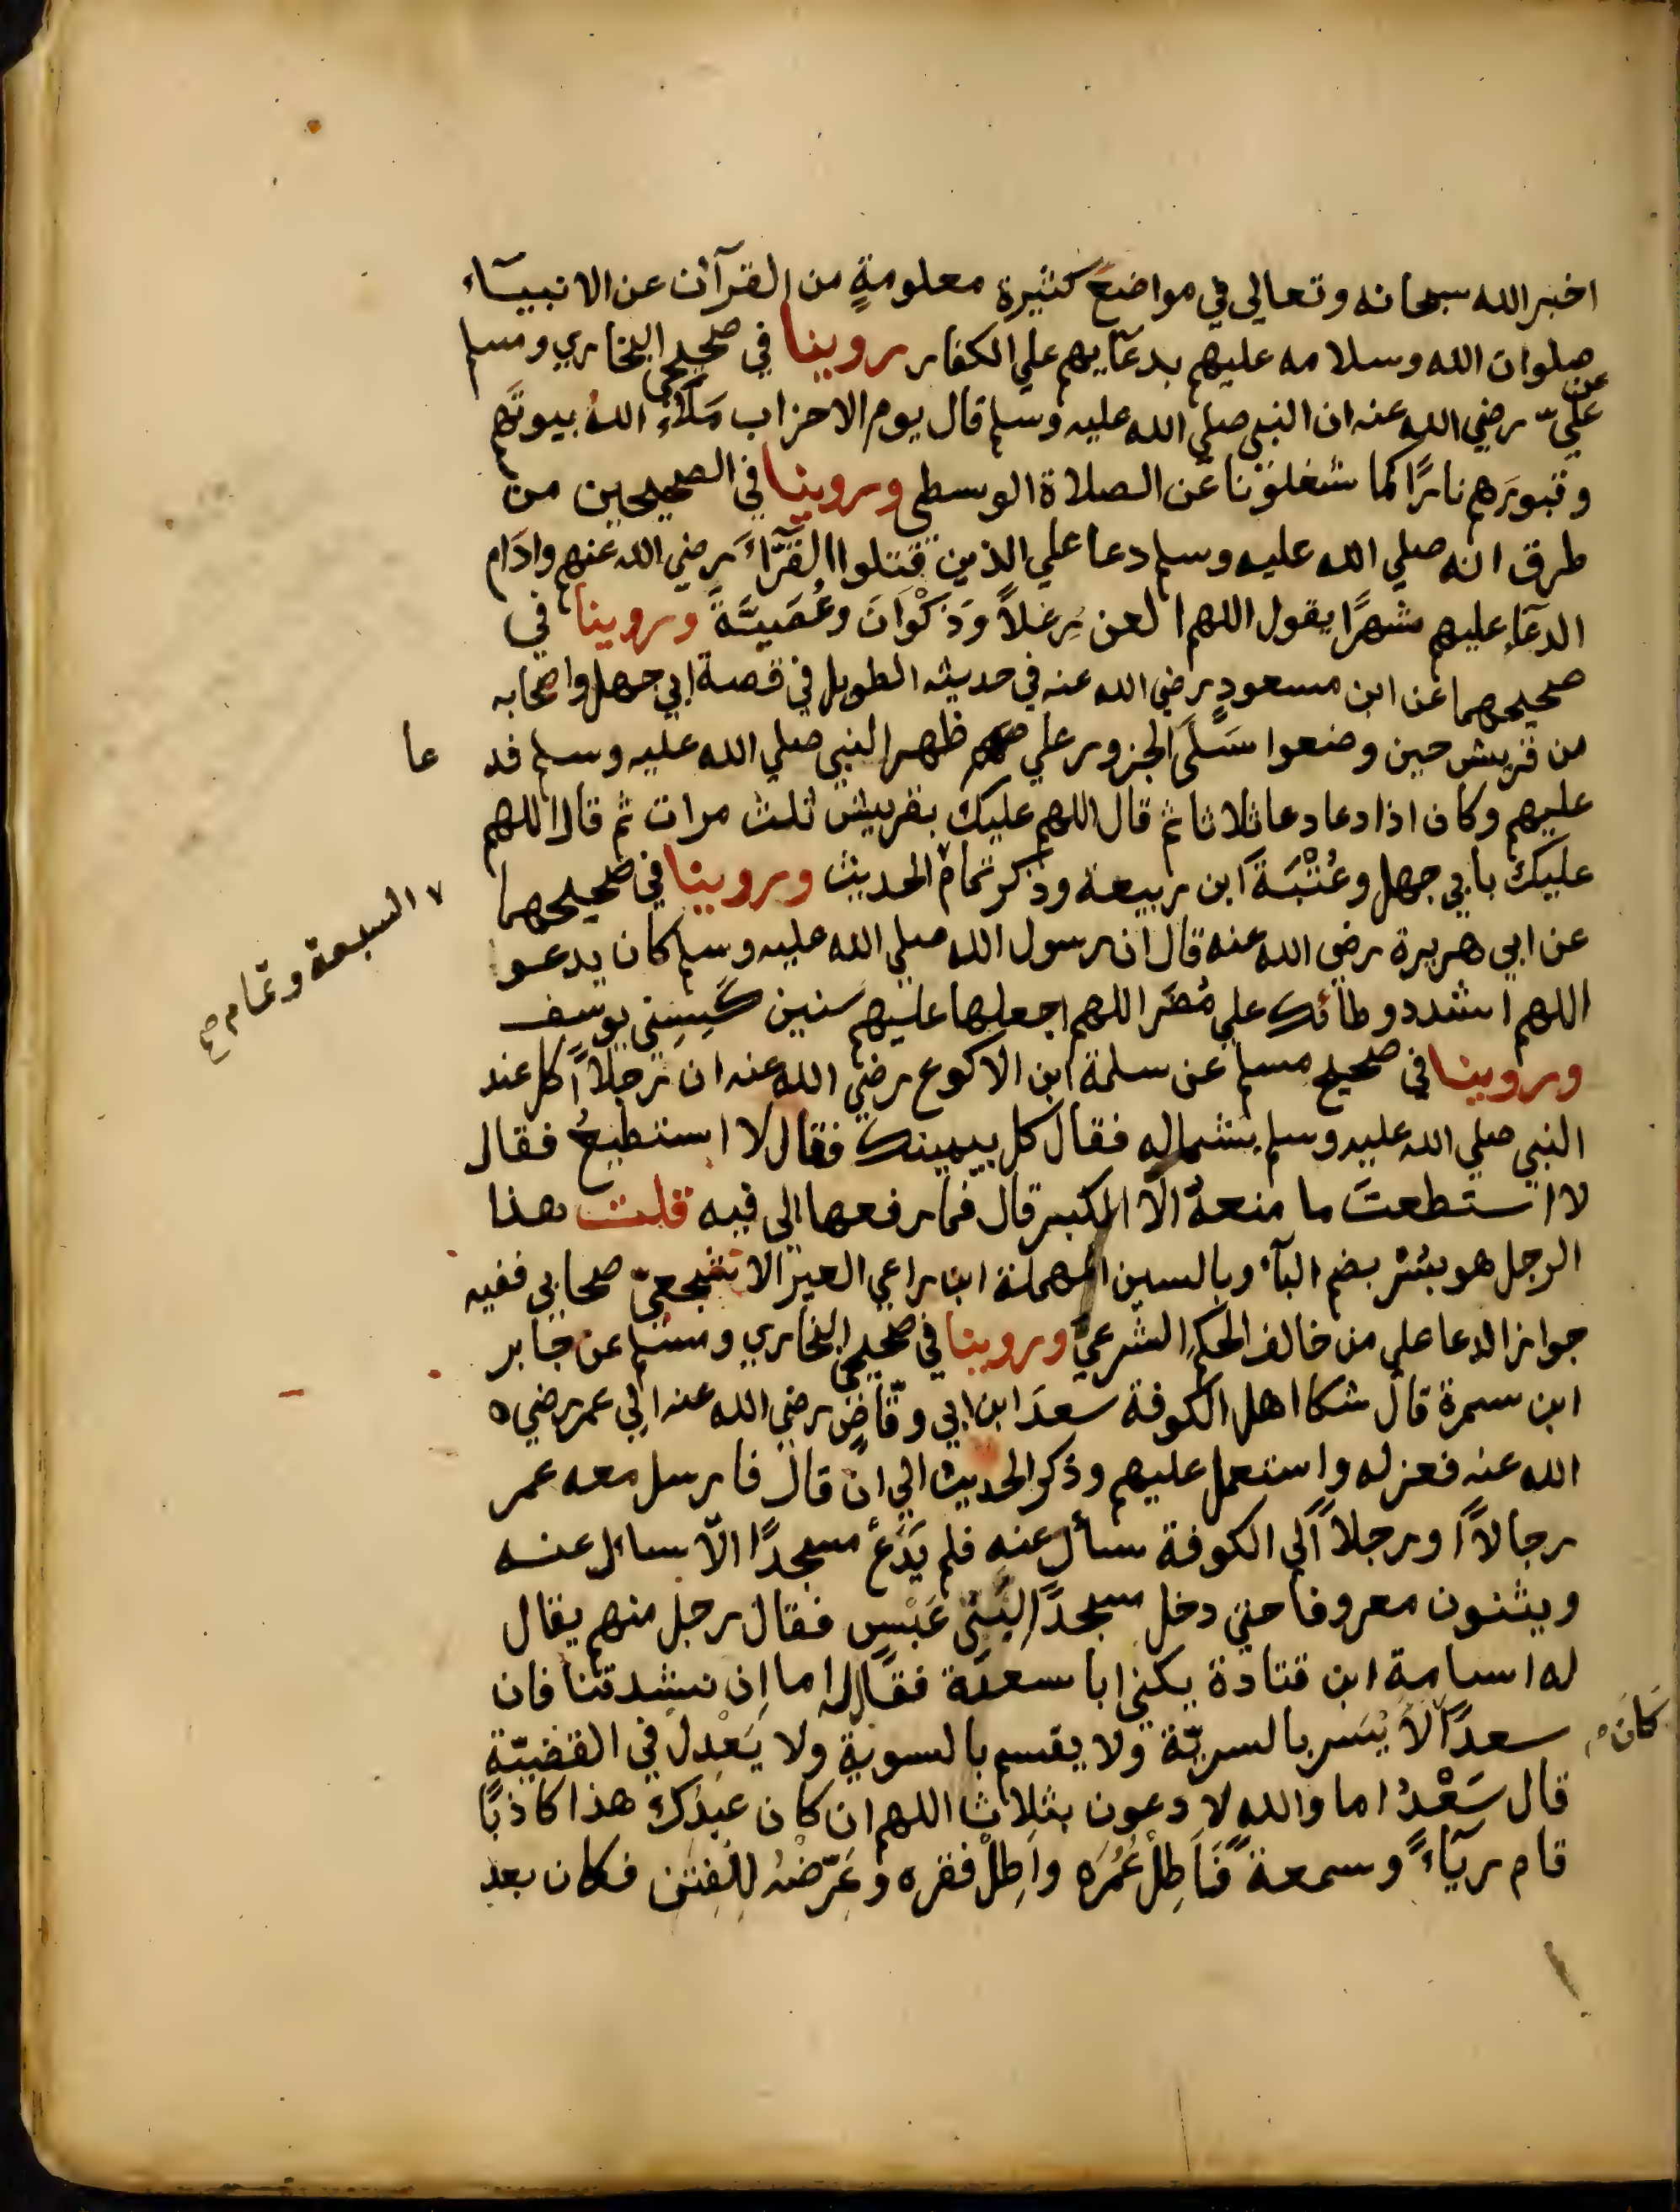 اخبر الله سبحانه وتعالي في مواضعَ كثيرة معلومةٍ من القرآن عن الانبيآء
صلوات الله وسلامه عليهم بدعآيهم علي الكفار روينا في صحيحي البخاري ومسلم
عن
عليّ رضي الله عنه ان النبي صلي الله عليه وسلم قال يوم الاحزاب مَلَأَ اللهُ بيوتَهم
وقبورَهم نارًا كما شغلوْنا عن الصلاة الوسطي وروينا في الصحيحين من
طرق انه صلي الله عليه وسلم دعا علي الذين قتلوا القرَّآءَ رضي الله عنهم وادَام
الدعآء عليهم شهرًا يقول اللهم العن رِعْلاً وَذَكْوَانَ وعُصَيَّةَ وروينا في
صحيحهما عن ابن مسعودٍ رضي الله عنه في حديثه الطويل في قصة ابي جهل واصحابه
من قريش حين وضعوا سَلَى الجزور علي ظهر النبي صلي الله عليه وسلم فد
عا
عليهم وكان اذا دعا دعا ثلاثا ثم قال اللهم عليك بقريش ثلث مرات ثم قال اللهم
عليك بابي جهل وعُتْبَةَ ابن ربيعة وذكر تمام الحديث وروينا في صحيحهما
٧ السبعة وتمام صح
عن ابي هريرة رضي الله عنه قال ان رسول الله صلي الله عليه وسلم كان يدعوا
اللهم اشدد وطائك علي مُضَر اللهم اجعلها عليهم سنين كَسِنِي يوسف
وروينا في صحيح مسلم عن سلمة ابن الاكوع رضي الله عنه ان رجلاً اكل عند
النبي صلي الله عليه وسلم بشماله فقال كل بيمينك فقال لا استطيعُ فقال
لا استطعتَ ما منعهُ الّا الكبر قال فما رفعها الي فيه قلت هذا
الرجل هو بسْر بضم البآء وبالسين المهملة ابن راعي العير الاشجعيّ صحابي ففيه
جواز الدعا علي من خالف الحكمِ الشرعيّ وروينا في صحيحي البخاري ومسلم عن جابر
ابن سمرة قال شكا اهل الكوفة سعدَ ابن ابي وقّاصٍ رضي الله عنه الي عمر رضي ٥
الله عنه فعزله واستعمل عليهم وذكر الحديث الي ان قال فارسل معه عمر
رجالاً او رجلاً الي الكوفة سأل عنه فلم يَدَعْ مسجدًا الّا سال عنه
ويثنون معروفا حتي دخل مسجدًا لِبَنِي عَبْسٍ فقال رجل منهم يقال
له اسامة ابن قتادة يكني ابا سعدَة فقال له اما اِن نشدتنا فان
سعدًا لا يَسير بالسريّة ولا يقسم بالسوية ولا يَعْدِل في القضيّة
كَان
قال سَعْدُ اما والله لا دعون بثلاث اللهم ان كان عَبدُك هذا كاذبًا
قام ريآءً وسمعة فَاَطِلْ عُمُرَه واَطِلْ فقره وعَرِّضْهُ لِلْفِتَن فكان بعد